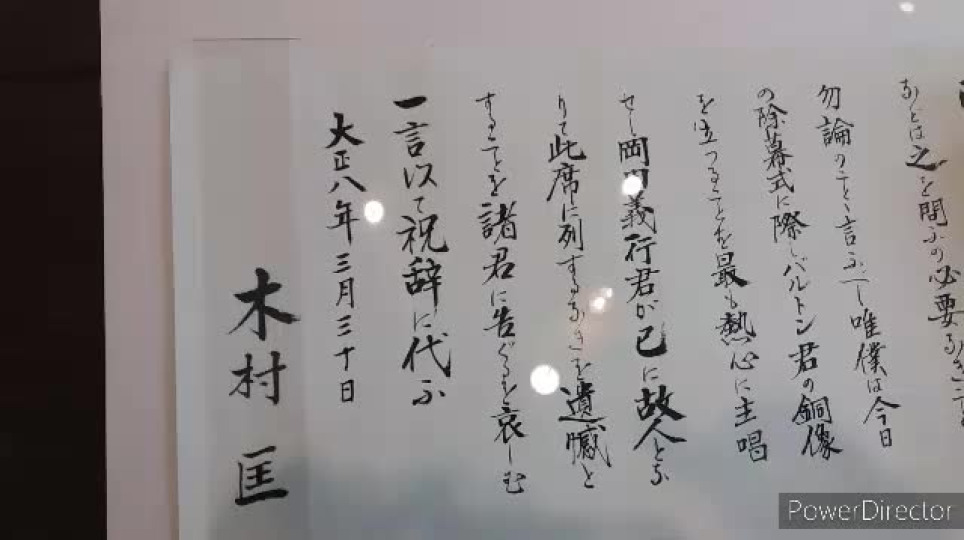 などは之を問ふの必要なきことを
勿論のこと言ふべし唯僕は今日
の除幕式に際しバルトン君の銅像
を立つることを最も熱心に主唱
せし岡田義行君が已に故人とな
りて此席に列するなきを遺憾と
することを諸君に告ぐるを哀しむ
一言以て祝辞に代ふ
大正八年三月三十日
木村 匡
PowerDirector